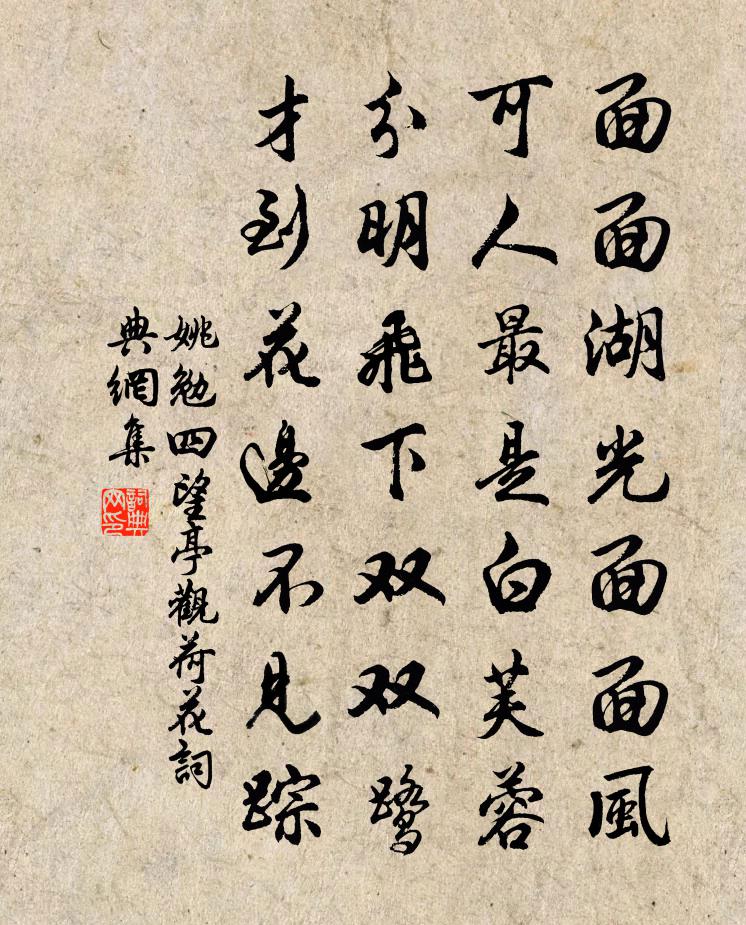 面面湖光面面風
可人最是白芙蓉
分明飛下双双鷺
才到花邊不見踪
姚勉四望亭觀荷花詞
典網集
詞典
网印